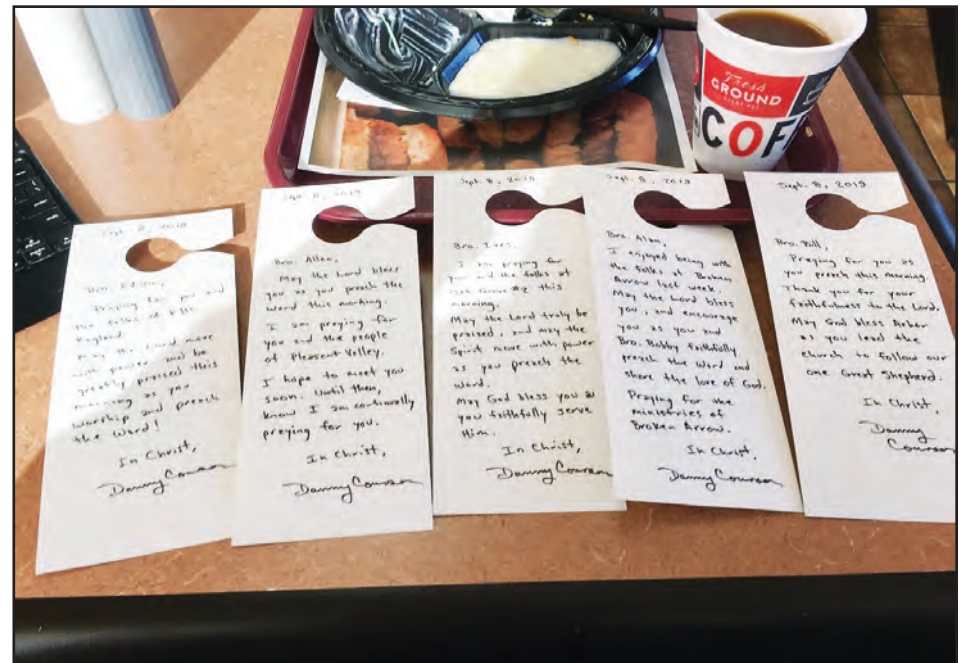 Fresh
GROUND
COF
Sept. 8, 2019
Praying for you and
the folks of
May the Lord move
with power and be
greatly praised this
morning as you
worship and preach
the Word!
In Christ,
Danny Courson
Sept. 8, 2019
Bro. Allen,
May the Lord bless
you as you preach the
Word this morning.
I am praying for
you and the people
of Pleasant Valley.
I hope to meet you
soon. Until then,
know I am continually
praying for you.
In Christ,
Danny Courson
Sept. 8, 2019
Bro.
I am praying for
you and the folks at
Grove #2 this
morning.
May the Lord truly be
praised, and may the
Spirit move with power
as you preach the
Word.
May God bless you as
you faithfully serve
Him.
In Christ,
Danny Courson
Sept. 8, 2019
Bro. Alan,
I enjoyed being with
the folks at Broken
Arrow last week.
May the Lord bless
you, and encourage
you as you and
Bro. Bobby faithfully
preach the Word and
share the love of God.
Praying for the
ministries of
Broken Arrow.
In Christ,
Danny Courson
Sept. 8, 2019
Bro. Bill,
Praying for you as
you preach this morning.
Thank you for your
faithfulness to the Lord.
May God bless Arbor
as you lead the
church to follow our
one Great Shepherd.
In Christ,
Danny
Courson